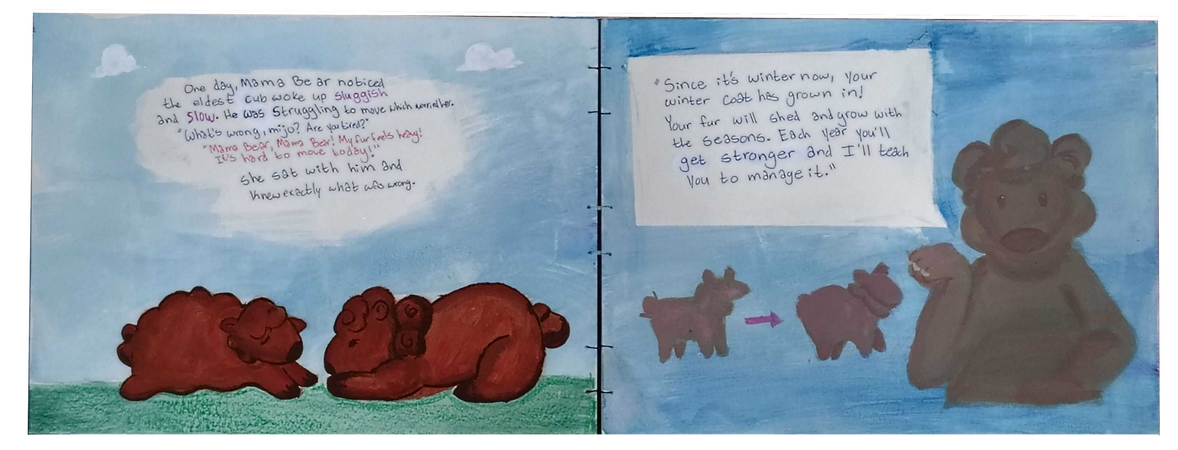 One day, Mama Bear noticed
the eldest cub woke up sluggish
and slow. He was struggling to move
"What's wrong, mijo? Are you tired?"
"Mama Bear, Mama Bear! My fur feels heavy!
It's hard to move today!"
She sat with him and
knew exactly what was wrong.
"Since it's winter now, your
winter coat has grown in!
Your fur will shed and grow with
the seasons. Each year you'll
get stronger and I'll teach
you to manage it."